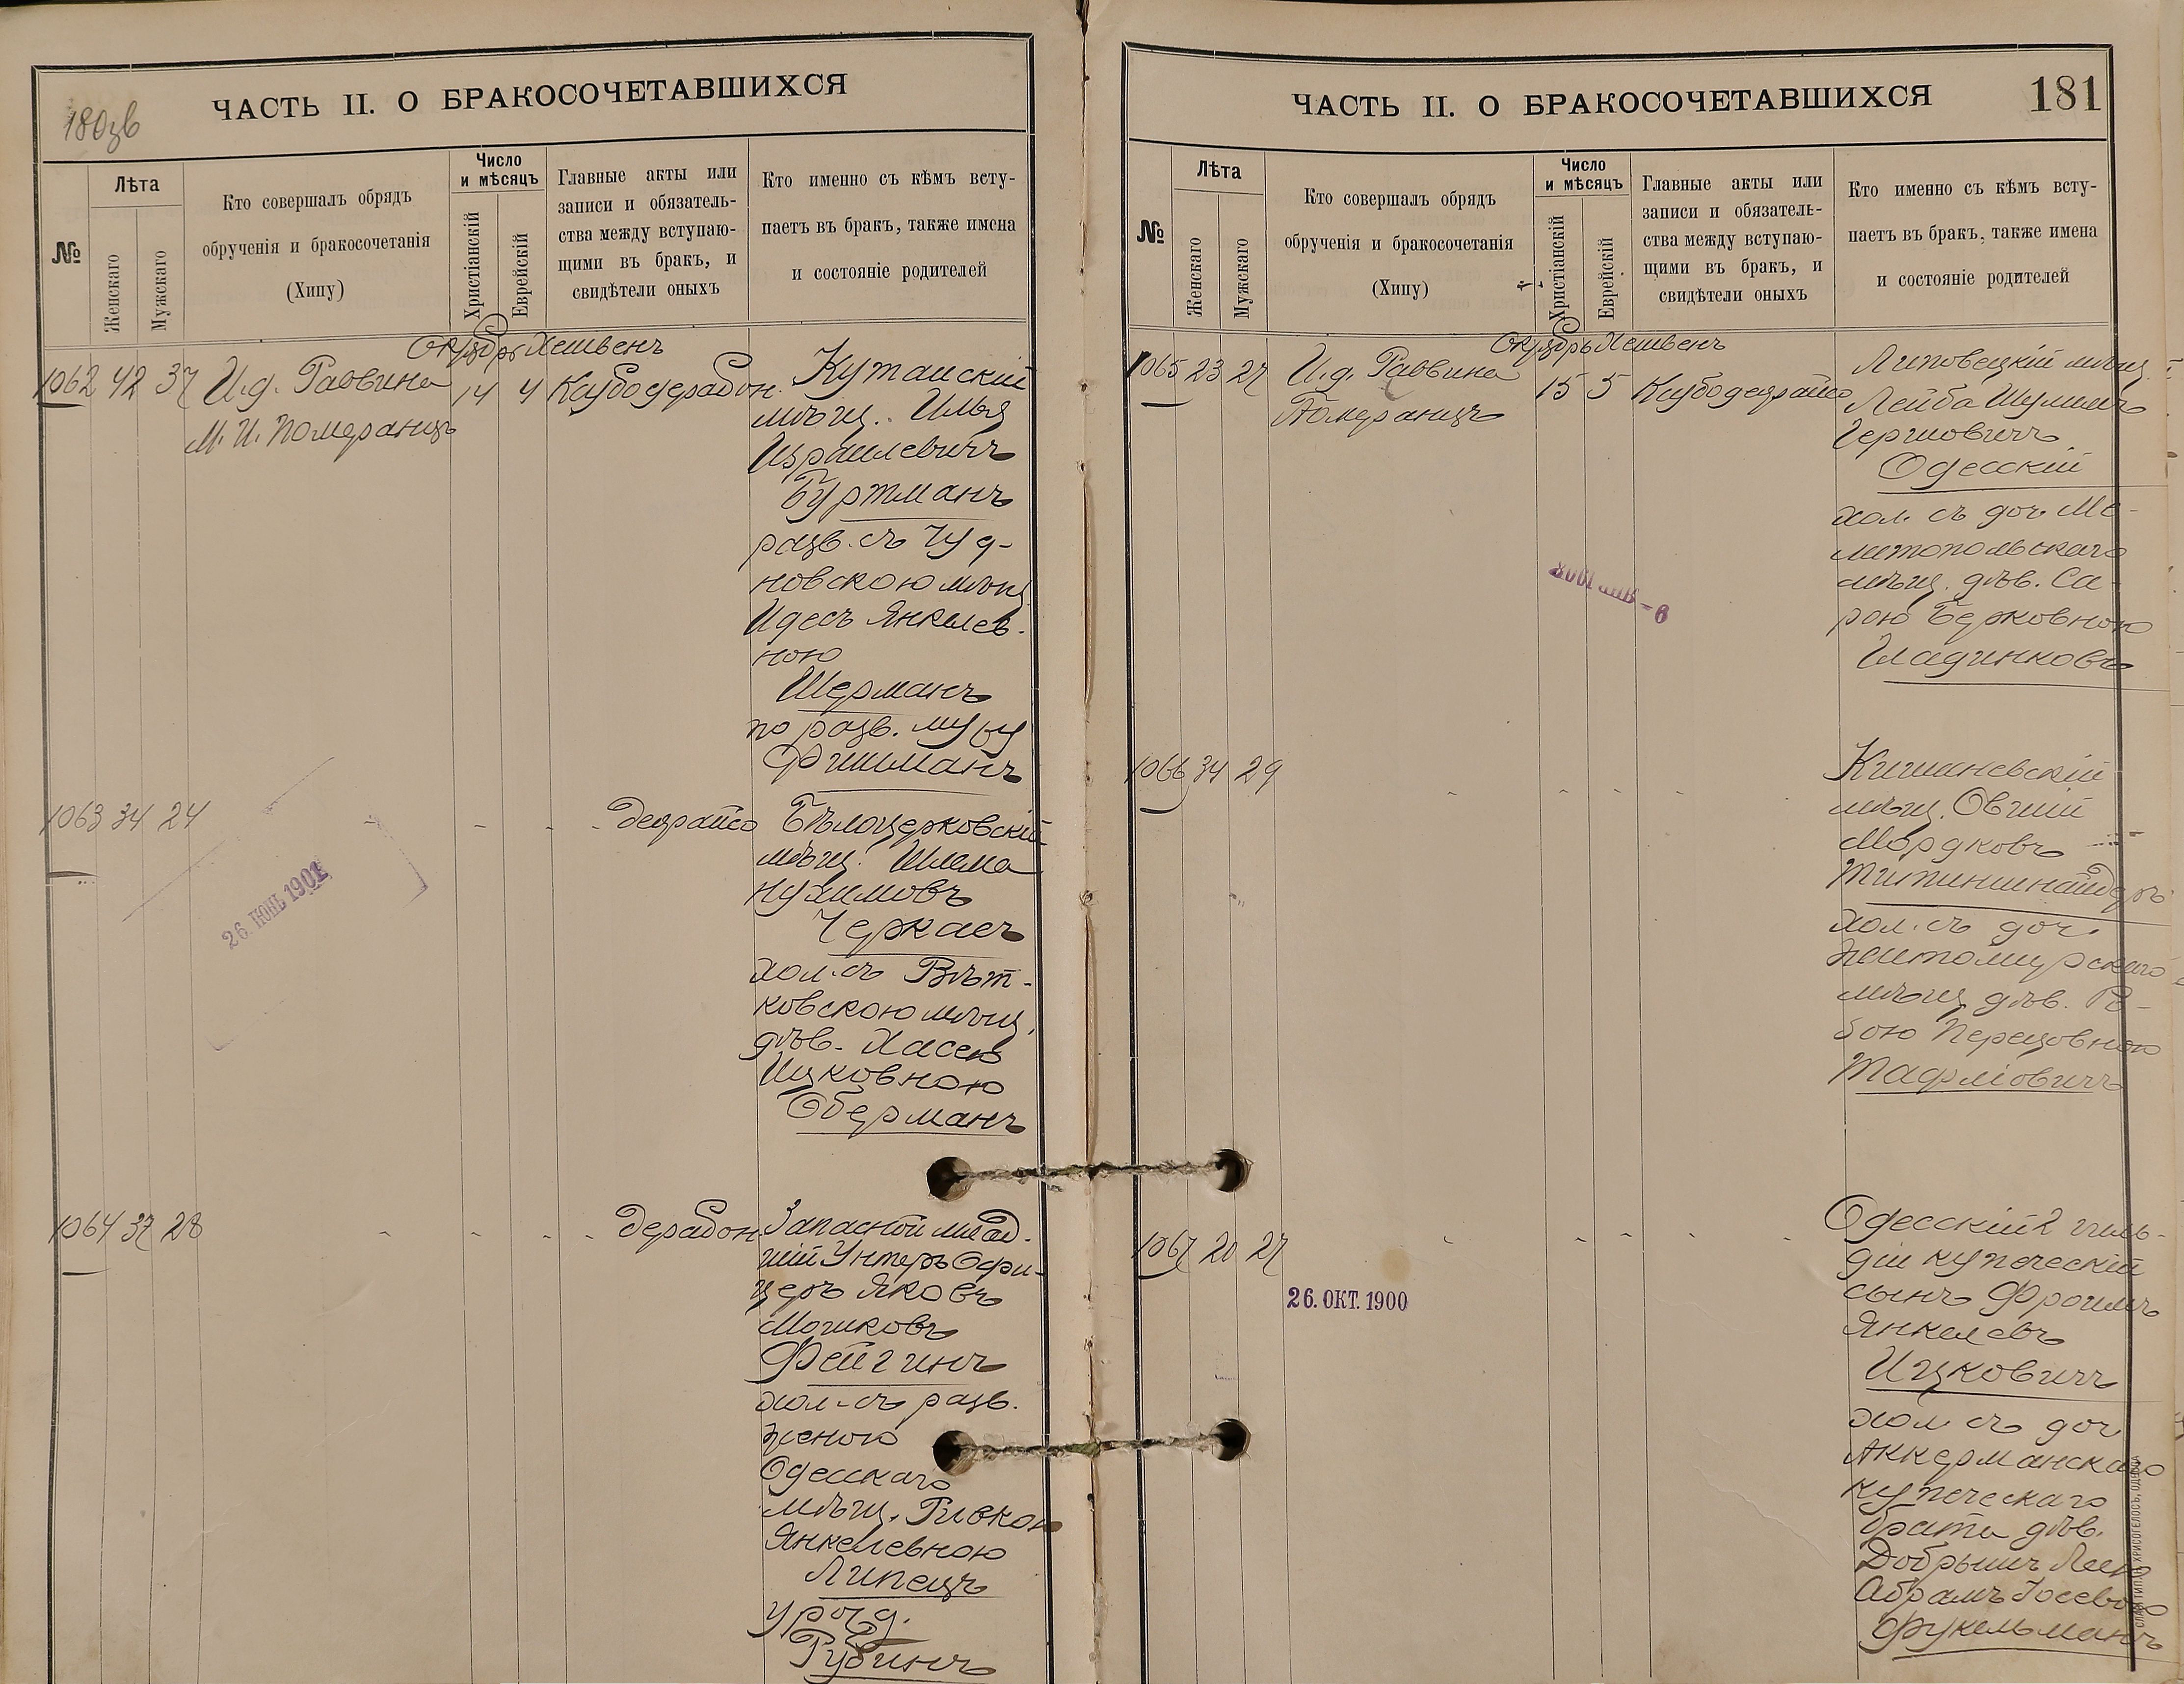 180зв
ЧАСТЬ II. О БРАКОСОЧЕТАВШИХСЯ
№
Лѣта
Женскаго
Мужскаго
Кто совершалъ обрядъ
обрученія и бракосочетанія
(Хипу)
Число
и мѣсяцъ
Христіанскій
Еврейскій
Главные акты или
записи и обязатель-
ства между вступаю-
щими въ бракъ, и
свидѣтели оныхъ
Кто именно съ кѣмъ всту-
паетъ въ бракъ, также имена
и состояніе родителей
Октябрь Хешвенъ
1062 42 37 И.д. Раввина 14 4
М. И. Померанцъ
Кутаискій
мѣщ. Илья
Израилевичъ
Буртманъ
разв. съ Чуд-
новскою мѣщ.
Идесъ Янкелев-
ною
Шерманъ
по разв. мужу
Фишманъ
1063 34 24
Бѣлоцерковскій
мѣщ. Шлема
Нухимовъ
Черкасъ
хол. съ Вѣт-
ковскою мѣщ.
дѣв. Хасею
Ицковною
Оберманъ
26. ІЮНЬ 1901
1064 37 28
Запасной млад-
шій Унтеръ Офи-
церъ Яковъ
Мошковъ
Фейгинъ
хол. съ разв.
женою
Одесскаго
мѣщ. Ривкою
Янкелевною
Липецъ
урожд.
Рубинъ
ЧАСТЬ II. О БРАКОСОЧЕТАВШИХСЯ
181
№
Лѣта
Женскаго
Мужскаго
Кто совершалъ обрядъ
обрученія и бракосочетанія
(Хипу)
Число
и мѣсяцъ
Христіанскій
Еврейскій
Главные акты или
записи и обязатель-
ства между вступаю-
щими въ бракъ, и
свидѣтели оныхъ
Кто именно съ кѣмъ всту-
паетъ въ бракъ, также имена
и состояніе родителей
Октябрь Хешвенъ
1065 23 27 И.д. Раввина 15 5
Померанцъ
Липовецкій мѣщ.
Лейба Шулимъ
Гершовичъ
Одесскій
хол. съ доч. Ме-
литопольскаго
мѣщ. дѣв. Са-
рою Берковною
Гладштковъ
1066 34 29
Кишиневскій
мѣщ. Овшій
Мордковъ
хол. съ доч.
Житомирскаго
мѣщ. дѣв. Ре-
Перецовною
1067 20 27
26. ОКТ. 1900
Одесскій 2 гиль-
діи купеческій
сынъ Фроимъ
Янкелевъ
Ицковичъ
хол. съ доч.
Аккерманскаго
купеческаго
брата дѣв.
Добрышъ
Абрамъ
Фукельманъ